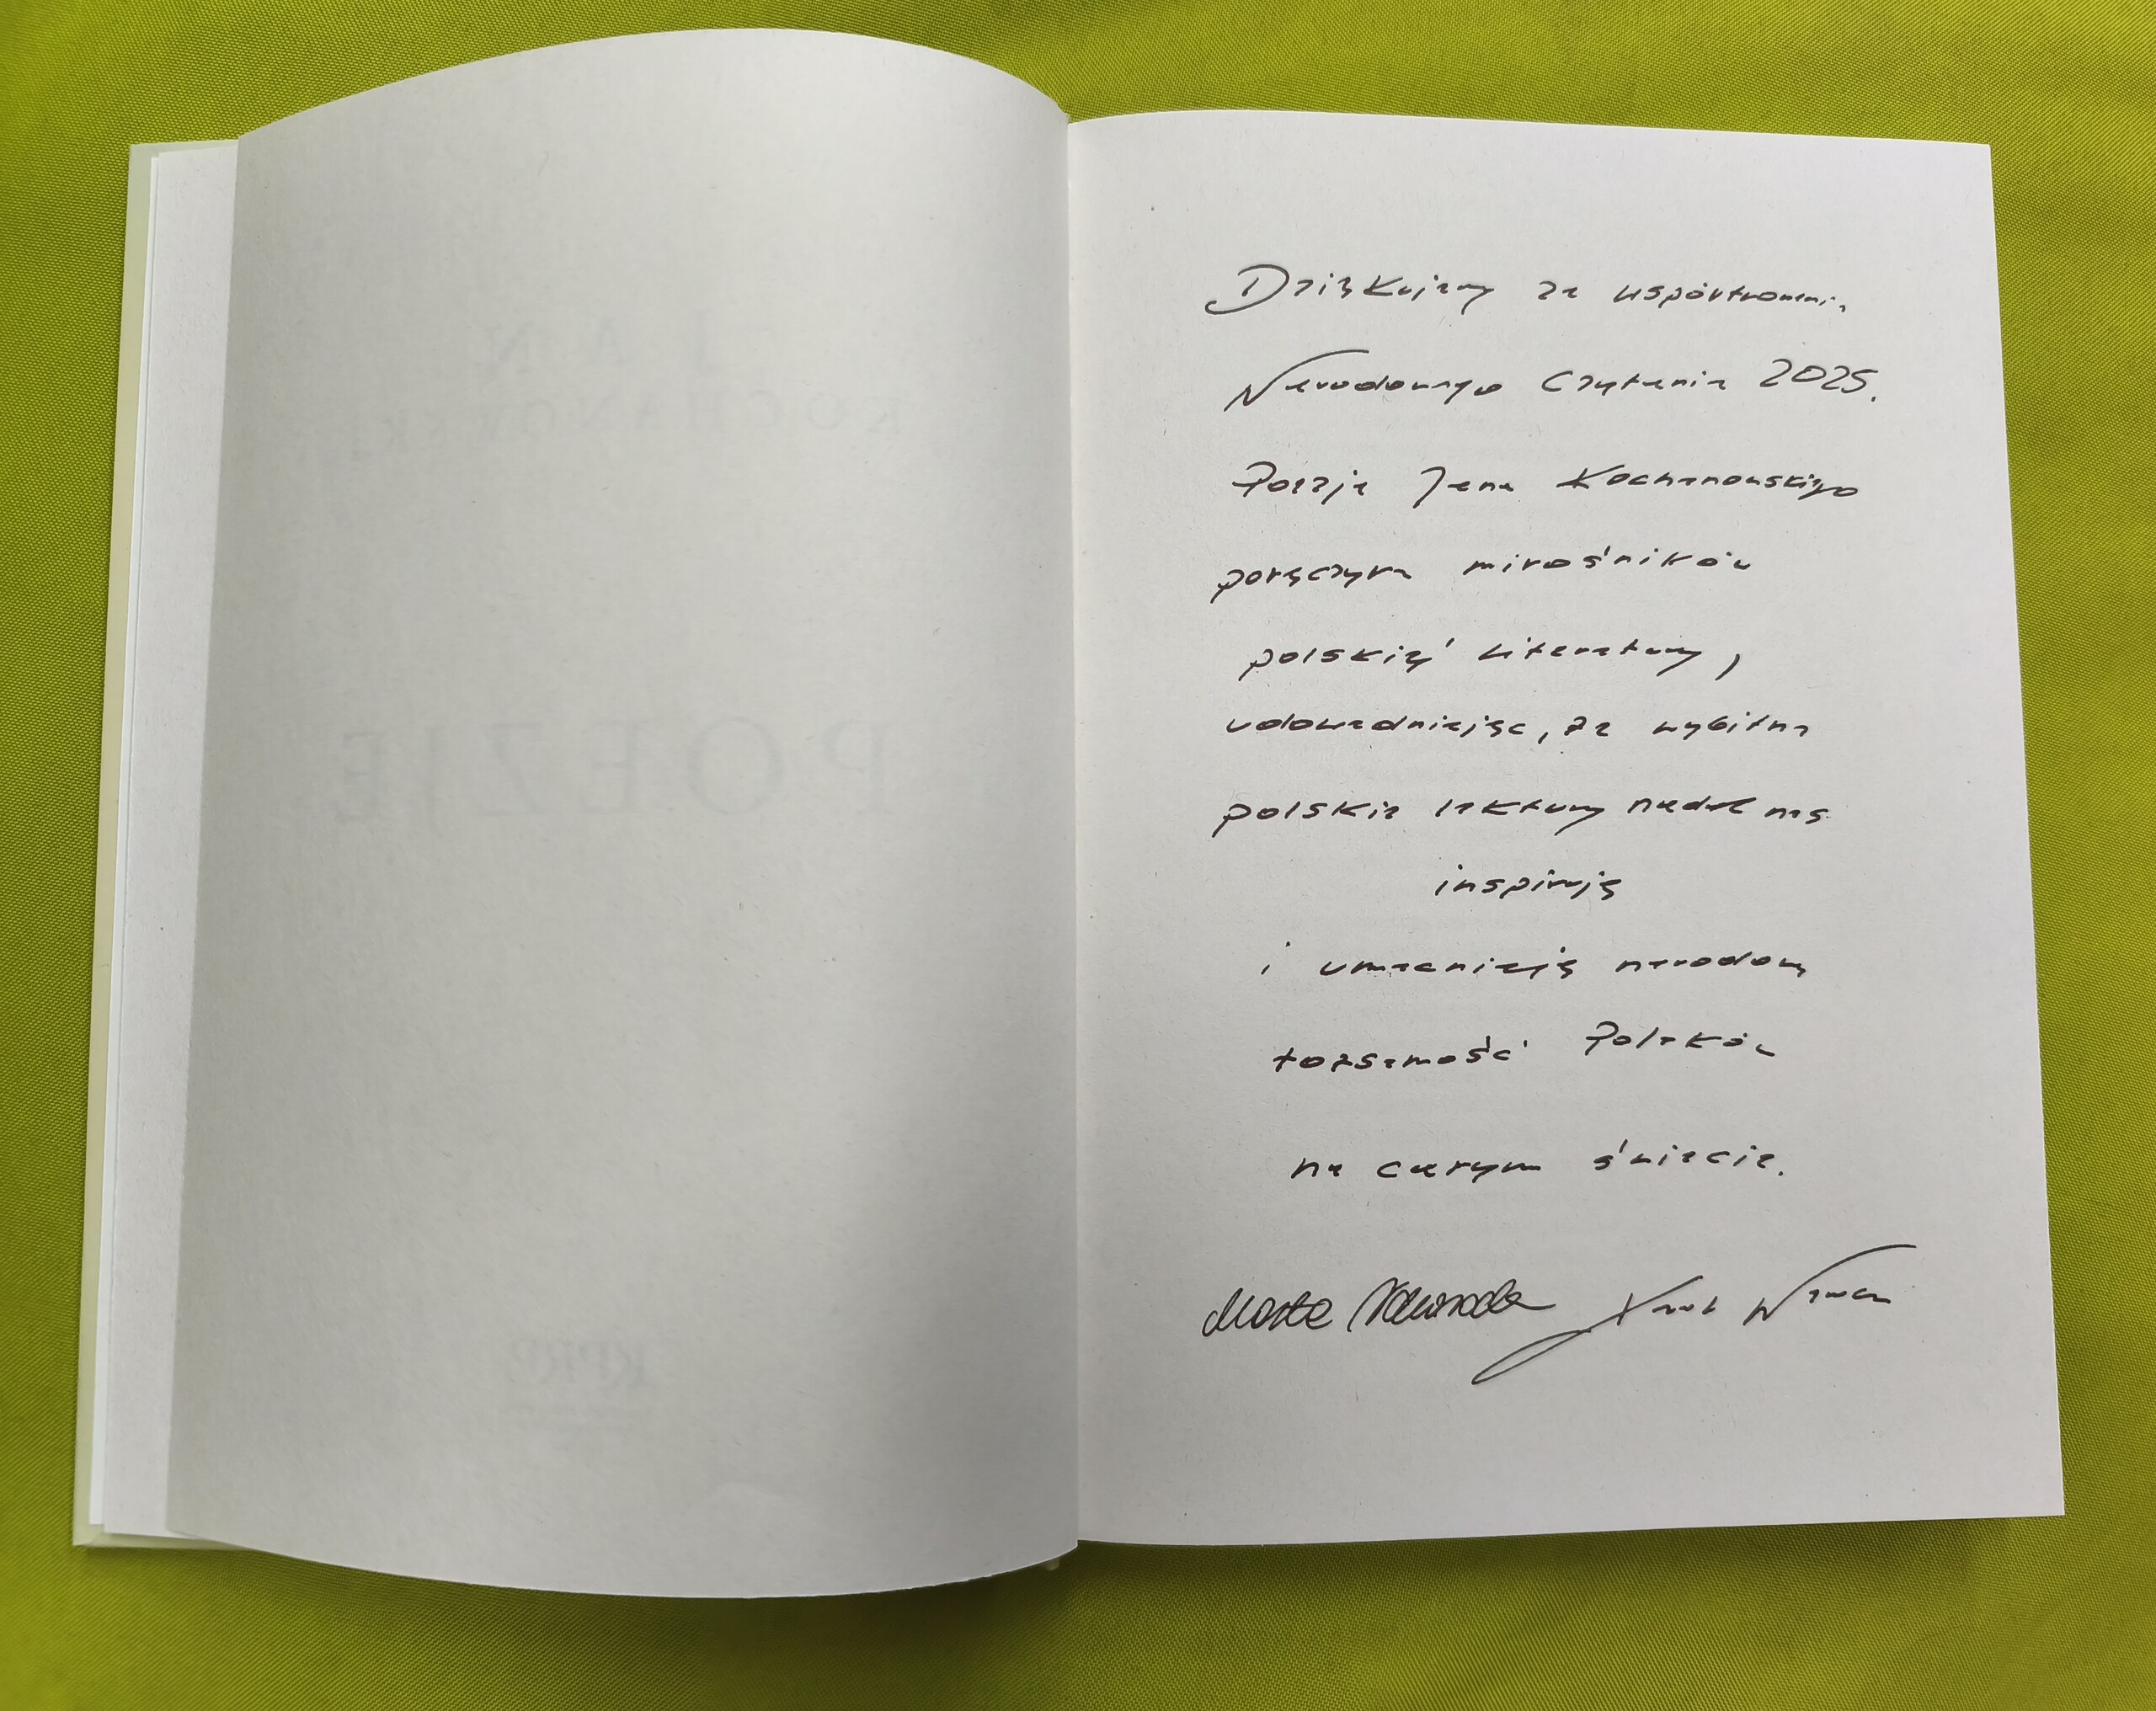 JAN
KOCHANOWSKI
POEZJE
KPRP
Dziękujemy za współtworzenie
Narodowego Czytania 2025.
Poezja Jana Kochanowskiego
połączyła miłośników
polskiej literatury,
udowadniając, że wybitne
polskie lektury nadal nas
inspirują
i umacniają narodową
tożsamość Polaków
na całym świecie.
Marta Nawrocka Karol Nawrocki